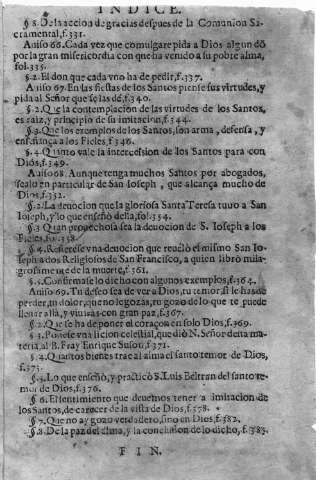 INDICE.
§ 8. De la accion de gracias despues de la Comunion Sa-
cramental, f.331.
Auiso 66. Cada vez que comulgare pida a Dios algun dõ
por la gran misericordia con que ha venido a su pobre alma,
fol.335.
§.2. El don que cada vno ha de pedir, f.337.
Auiso 67. En las fiestas de los Santos piense sus virtudes, y
pida al Señor que se las dé, f.340.
§.2. Que la contemplacion de las virtudes de los Santos,
es raiz, y principio de su imitacion, f.344.
§.3. Que los exemplos de los Santos, son arma, defensa, y
enseñança a los Fieles, f.346.
§.4. Quanto vale la intercession de los Santos para con
Dios, f.349.
Auiso 68. Aunque tenga muchos Santos por abogados,
sealo en particular de San Ioseph, que alcança mucho de
Dios, f.352.
§.2. La deuocion que la gloriosa Santa Teresa tuuo a San
Ioseph, y lo que enseñò della, fol.354.
§.3 Quan prouechosa sea la deuocion de S. Ioseph a los
Fieles, fol.358.
§.4. Refierese vna deuocion que reuelò el mismo San Io-
seph a dos Religiosos de San Francisco, a quien librò mila-
grosamente de la muerte, f.361.
§.5. Confirmase lo dicho con algunos exemplos, f.364.
Auiso 69. Tu deseo sea de ver a Dios, tu temor si le has de
perder, tu dolor, que no le gozas, tu gozo de lo que te puede
lleuar allà, y viuiràs con gran paz, f.367.
§.2. Que se ha de poner el coraçon en solo Dios, f.369.
§.3. Ponese vna licion celestial, que diò N. Señor desta ma-
teria, al B. Fray Enrique Suson, f.371.
§.4. Quantos bienes trae al alma el santo temor de Dios,
f.373.
§.5. Lo que enseñò, y practicò S. Luis Beltran del santo te-
mor de Dios, f.376.
§.6. El sentimiento que deuemos tener a imitacion de
los Santos, de carecer de la vista de Dios, f.378.
§.7. Que no ay gozo verdadero, sino en Dios, f.382.
§.8. De la paz del alma, y la conclusion de lo dicho, f.383.
FIN.